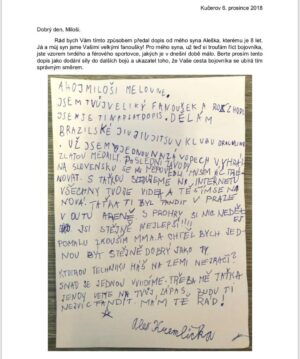 Kučerov 8. prosince 2018
Dobrý den, Miloši.
Rád bych Vám tímto způsobem předal dopis od mého syna Aleška, kterému je 8 let.
Já a můj syn jsme Vašimi velkými fanoušky! Pro mého syna, už teď si troufám říct bojovníka,
jste vzorem tvrdého a férového sportovce, jakých je v dnešní době málo. Berte prosím tento
dopis jako dodání síly do dalších bojů a ukazatel toho, že Vaše cesta bojovníka se ubírá tím
správným směrem.
AHOJ MILOŠI MELOUNE.
JSEM TVŮJ VELIKÝ FANOUŠEK A ROZHODL
JSEM SE TI NAPSAT DOPIS. DĚLÁM
BRAZILSKÉ JIU JITSU V KLUBU
UŽ JSEM
ZLATOU MEDAILI POSLEDNÍ ZÁVODY
NA SLOVENSKU SE MI NEPOVEDLI MUSÍM
NOVAT. S TAŤKOU SLEDUJEME NA INTERNETU
VŠECHNY TVOJE VIDEA A TĚŠÍM SE NA
NOVÁ. TAŤKA TI BYL FANDIT V PRAZE
V O2 ARENĚ S PROHRY SI NIC NEDĚLEJ
JSI STEJNĚ NEJLEPŠÍ!!!
POMALU ZKOUŠÍM MMA A CHTĚL BYCH JED-
NOU BÝT STEJNĚ DOBRÝ JAKO TY
KTEROU TECHNIKU MÁŠ NA ZEMI NEJRAČI?
SNAD SE JEDNOU UVIDÍME. TŘEBA MĚ TAŤKA
JEDNOU VEME NA TVŮJ ZÁPAS, BUDU TI
NEJVÍC FANDIT MÁM TĚ RÁD!
Aleš Kremlička